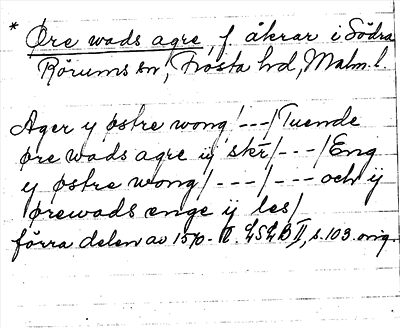 * Øre wads agre, f. åkrar i Södra
Rörums sn, Frosta hd, Malm. l.
Ager y østre wong /---/ Tuende
øre wads agre ij skr /---/ Eng
y østre wong /---/ --- och ij
ørewads enge ij les /
förra delen av 1570-t. LSLB II, s. 103 orig.